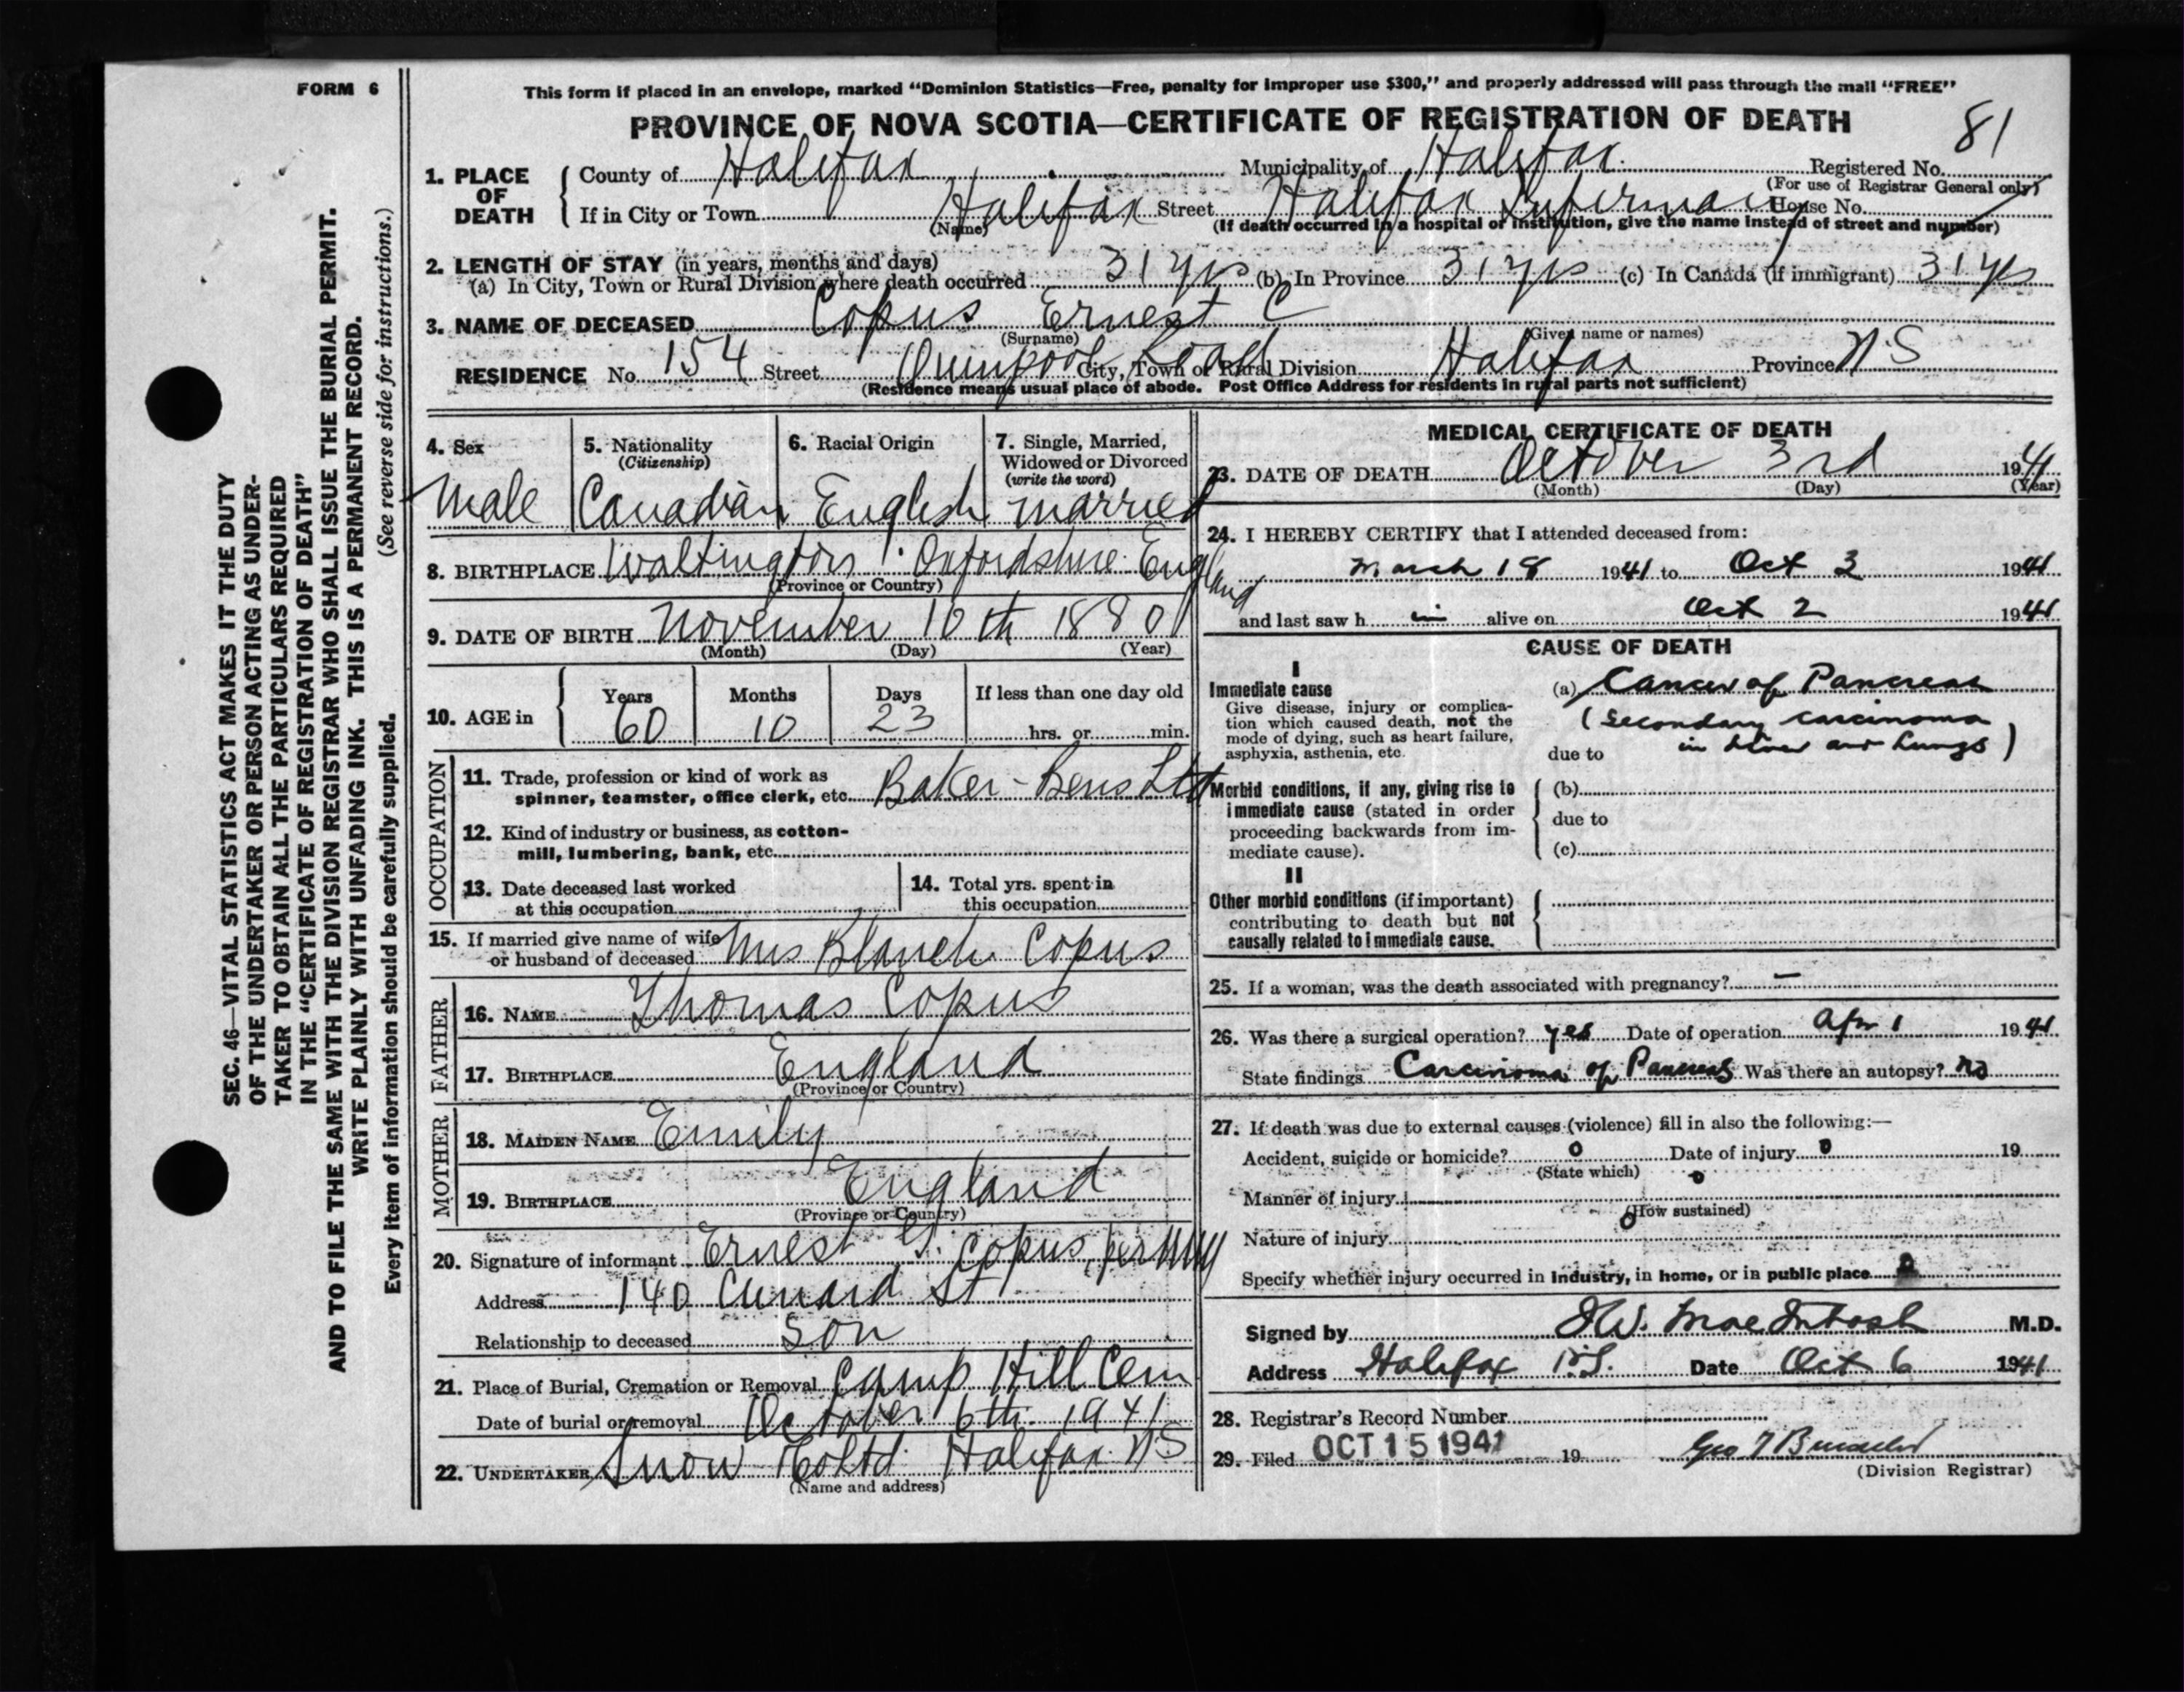 FORM 6
This form if placed in an envelope, marked “Dominion Statistics—Free, penalty for improper use $300,” and properly addressed will pass through the mail “FREE”
PROVINCE OF NOVA SCOTIA—CERTIFICATE OF REGISTRATION OF DEATH
81
1. PLACE OF DEATH
County of Halifax Municipality of Halifax Registered No.
(For use of Registrar General only)
If in City or Town Halifax Street Halifax Infirmary House No.
(Name) (If death occurred in a hospital or institution, give the name instead of street and number)
2. LENGTH OF STAY (in years, months and days)
(a) In City, Town or Rural Division where death occurred 31 yrs (b) In Province 31 yrs (c) In Canada (if immigrant) 31 yrs
3. NAME OF DECEASED Copus Ernest C
(Surname) (Given name or names)
RESIDENCE No. 154 Street Quinpool Road City, Town or Rural Division Halifax Province N.S
(Residence means usual place of abode. Post Office Address for residents in rural parts not sufficient)
4. Sex
Male
5. Nationality
(Citizenship)
Canadian
6. Racial Origin
English
7. Single, Married,
Widowed or Divorced
(write the word)
married
8. BIRTHPLACE Waltington Oxfordshire England
(Province or Country)
9. DATE OF BIRTH November 10th 1880
(Month) (Day) (Year)
10. AGE in
Years Months Days If less than one day old
60 10 23 hrs. or min.
OCCUPATION
11. Trade, profession or kind of work as
spinner, teamster, office clerk, etc. Baker - Bens Ltd
12. Kind of industry or business, as cotton-
mill, lumbering, bank, etc.
13. Date deceased last worked
at this occupation
14. Total yrs. spent in
this occupation
15. If married give name of wife
or husband of deceased Mrs Blanch Copus
FATHER
16. NAME Thomas Copus
17. BIRTHPLACE England
(Province or Country)
MOTHER
18. MAIDEN NAME Emily
19. BIRTHPLACE England
(Province or Country)
20. Signature of informant Ernest G. Copus, per
Address 140 Cunard St
Relationship to deceased Son
21. Place of Burial, Cremation or Removal Camp Hill Cem
Date of burial or removal October 6th 1941
22. UNDERTAKER Snow Co Ltd Halifax NS
(Name and address)
MEDICAL CERTIFICATE OF DEATH
23. DATE OF DEATH October 3rd 1941
(Month) (Day) (Year)
24. I HEREBY CERTIFY that I attended deceased from:
March 18 1941 to Oct 3 1941
and last saw h im alive on Oct 2 1941
CAUSE OF DEATH
I
Immediate cause
Give disease, injury or complica-
tion which caused death, not the
mode of dying, such as heart failure,
asphyxia, asthenia, etc.
(a) Cancer of Pancreas
(Secondary carcinoma
due to in Liver and Lungs)
Morbid conditions, if any, giving rise to
immediate cause (stated in order
proceeding backwards from im-
mediate cause).
(b)
due to
(c)
II
Other morbid conditions (if important)
contributing to death but not
causally related to immediate cause.
25. If a woman, was the death associated with pregnancy? —
26. Was there a surgical operation? yes Date of operation Apr 1 1941
State findings Carcinoma of Pancreas Was there an autopsy? no
27. If death was due to external causes (violence) fill in also the following:—
Accident, suicide or homicide? 0 Date of injury 0 19
(State which)
Manner of injury 0
(How sustained)
Nature of injury 0
Specify whether injury occurred in industry, in home, or in public place 0
Signed by W. MacIntosh M.D.
Address Halifax N.S. Date Oct 6 1941
28. Registrar's Record Number
29. Filed OCT 15 1941 19
(Division Registrar)
SEC. 46—VITAL STATISTICS ACT MAKES IT THE DUTY
OF THE UNDERTAKER OR PERSON ACTING AS UNDER-
TAKER TO OBTAIN ALL THE PARTICULARS REQUIRED
IN THE “CERTIFICATE OF REGISTRATION OF DEATH”
AND TO FILE THE SAME WITH THE DIVISION REGISTRAR WHO SHALL ISSUE THE BURIAL PERMIT.
WRITE PLAINLY WITH UNFADING INK. THIS IS A PERMANENT RECORD.
Every item of information should be carefully supplied. (See reverse side for instructions.)